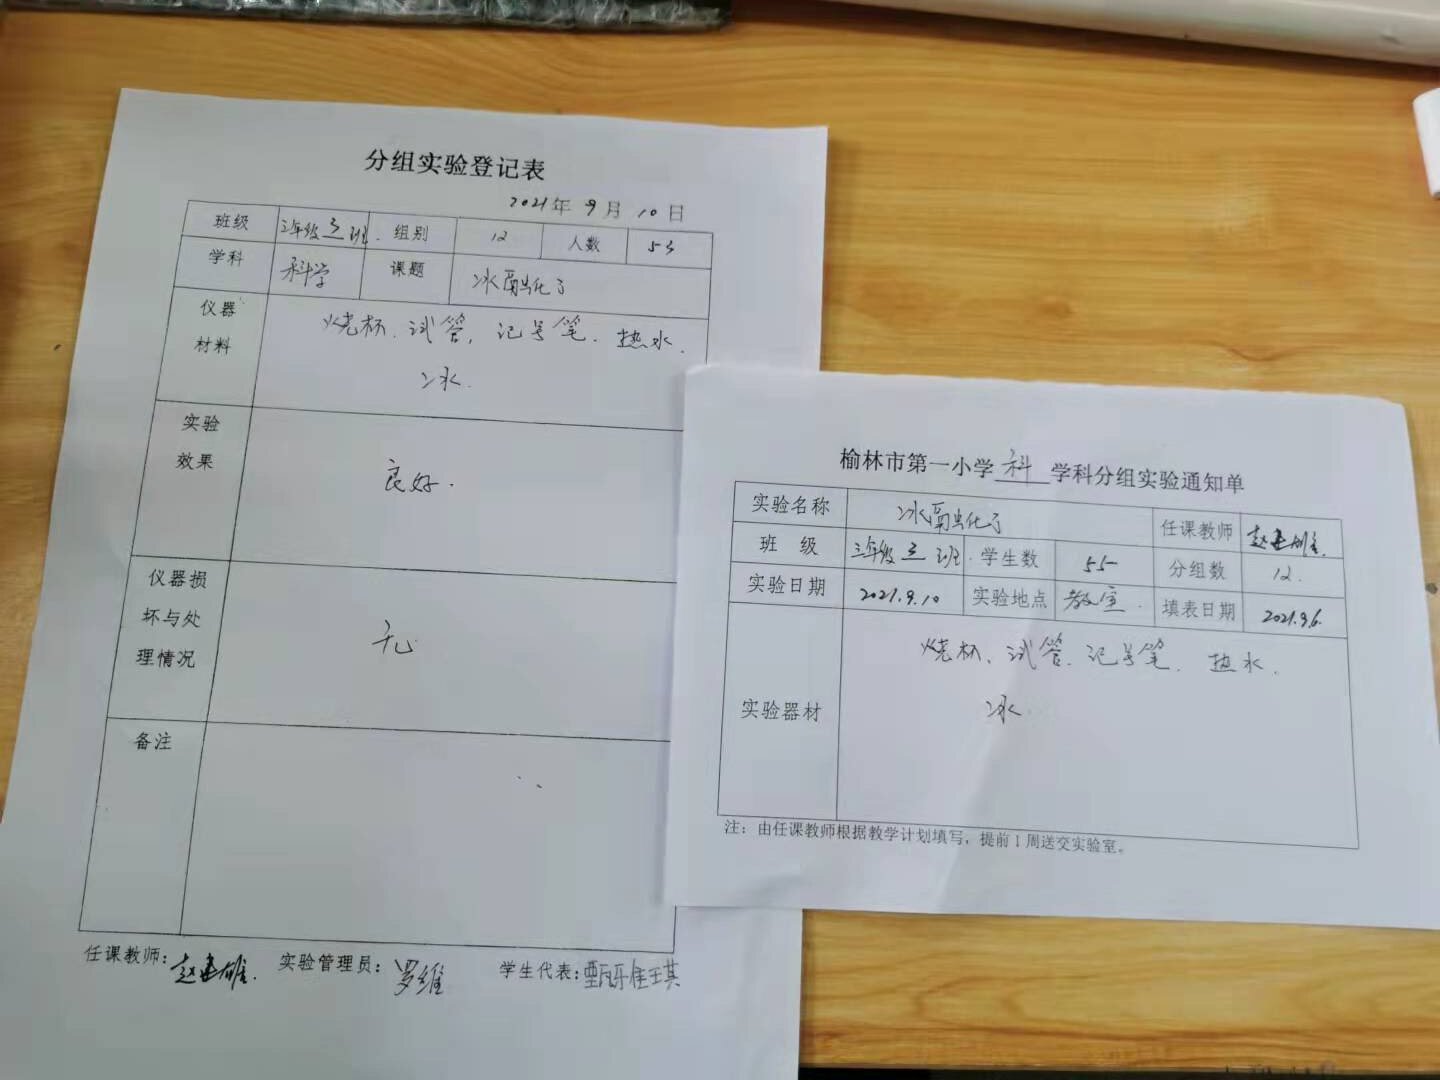 分组实验登记表
2021年 9月 10日
班级 三年级 3 班. 组别 12 人数 53
学科 科学 课题 冰融化了
仪器 烧杯、试管, 记号笔. 热水.
材料 冰.
实验
效果 良好.
仪器损
坏与处 无
理情况
备注
任课教师: 赵建雄. 实验管理员: 罗维 学生代表:
榆林市第一小学 科 学科分组实验通知单
实验名称 冰融化了 任课教师 赵建雄.
班 级 三年级 3 班. 学生数 55 分组数 12.
实验日期 2021.9.10 实验地点 教室. 填表日期 2021.9.6.
实验器材 烧杯、试管、记号笔. 热水.
冰.
注：由任课教师根据教学计划填写，提前1周送交实验室。